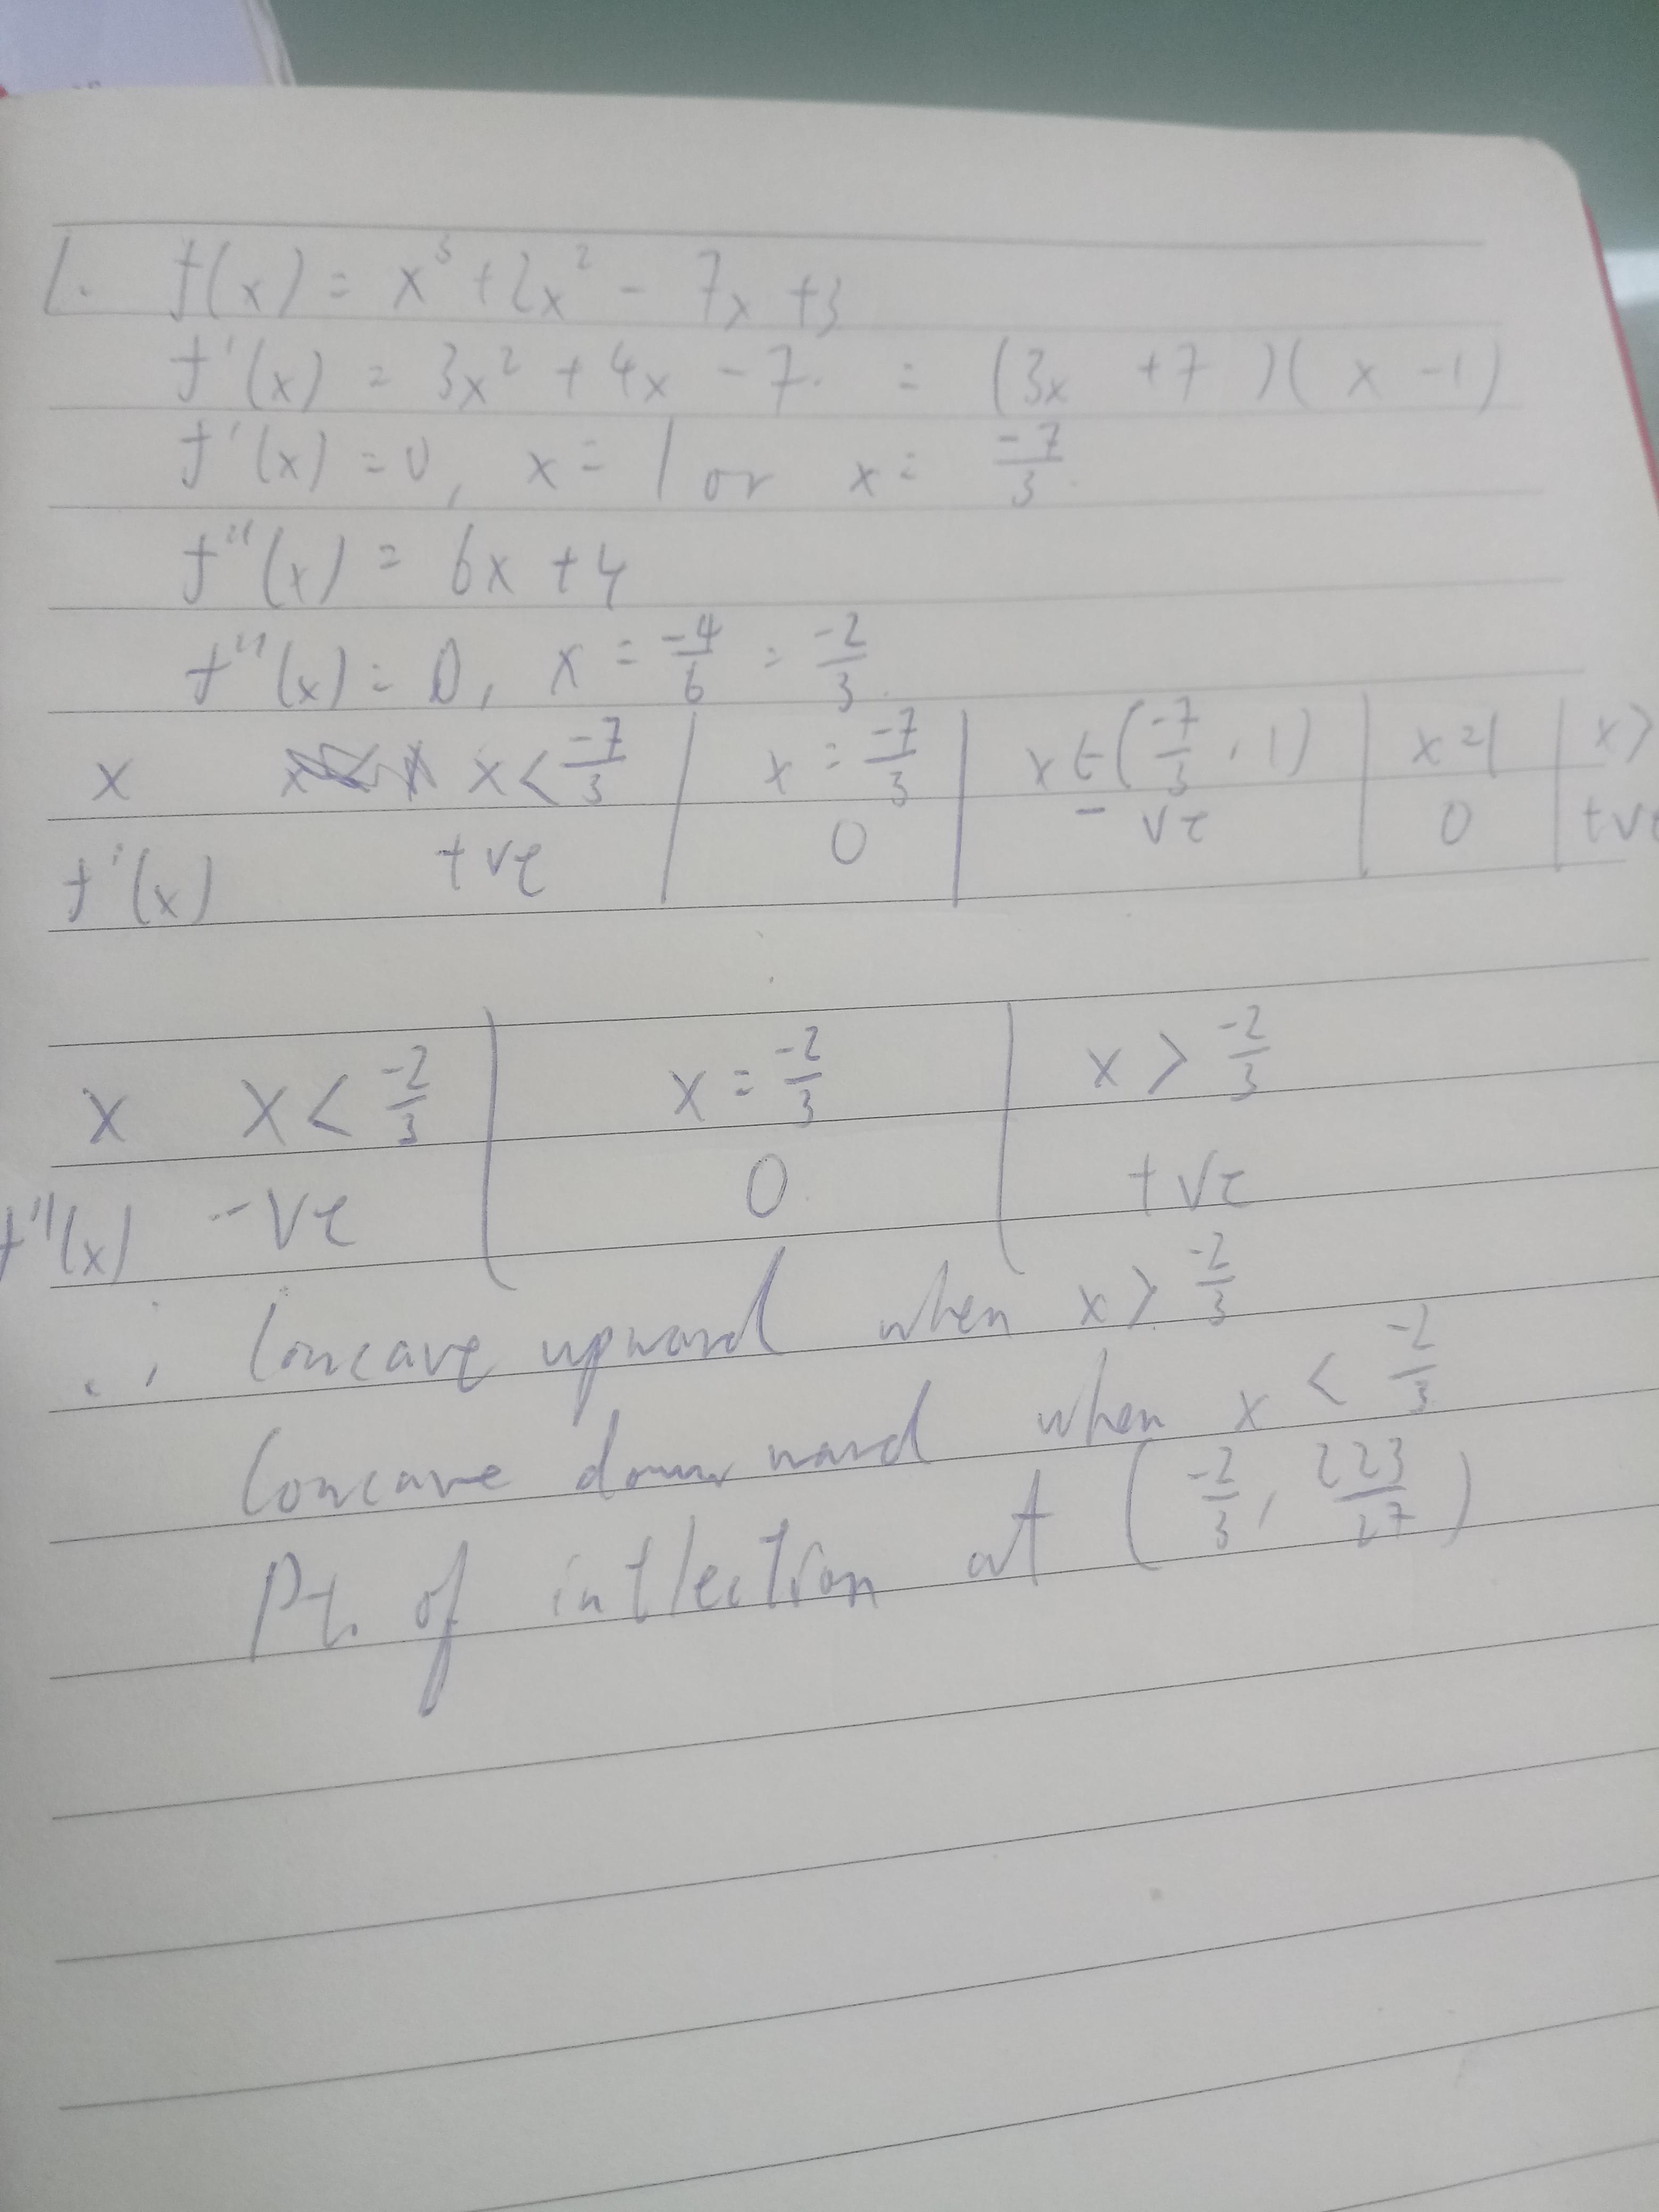 1. f(x) = x³ + 2x² - 7x + 3
f'(x) = 3x² + 4x - 7 = (3x + 7)(x - 1)
f'(x) = 0, x = 1 or x = -7/3
f''(x) = 6x + 4
f''(x) = 0, x = -4/6 = -2/3
x x < -7/3 | x = -7/3 | x ∈ (-7/3, 1) | x = 1 | x >
f'(x) +ve | 0 | -ve | 0 | +ve
x x < -2/3 | x = -2/3 | x > -2/3
f''(x) -ve | 0 | +ve
∴ Concave upward when x > -2/3
Concave downward when x < -2/3
Pt. of inflection at (-2/3, 223/27)